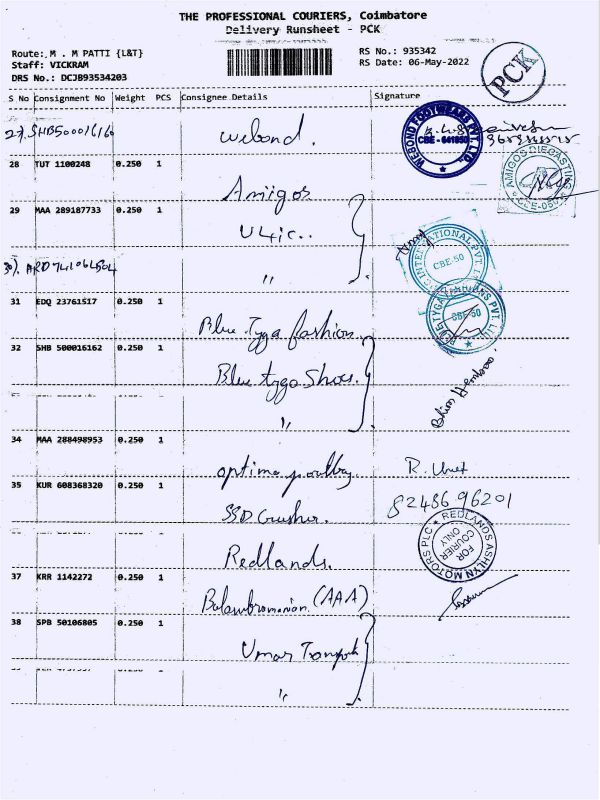 THE PROFESSIONAL COURIERS, Coimbatore
Delivery Runsheet - PCK
Route: M . M PATTI {L&T}
Staff: VICKRAM
DRS No.: DCJB93534203
RS No.: 935342
RS Date: 06-May-2022
PCK
S No Consignment No Weight PCS Consignee Details Signature
27. SHB500016160 webond.
WEBOND FOOTWEARS PVT. LTD.
CBE - 641050
28 TUT 1100248 0.250 1
Amigos
AMIGOS DIECASTING
29 MAA 289187733 0.250 1 U4ic..
INTERNATIONAL PVT.
CBE-50
〃
31 EDQ 23761517 0.250 1
Blue Tyga fashion.
CBE-50
32 SHB 500016162 0.250 1
Blue tyga Shoes.
〃
34 MAA 288498953 0.250 1
optima poultry R.
35 KUR 608368320 0.250 1
SSD Crusher. 8248696201
Redlands.
REDLANDS ASHLYN MOTORS PLC
FOR COURIER ONLY
37 KRR 1142272 0.250 1
Balasubramanian (AAA)
38 SPB 50106805 0.250 1
Umar Transport
〃